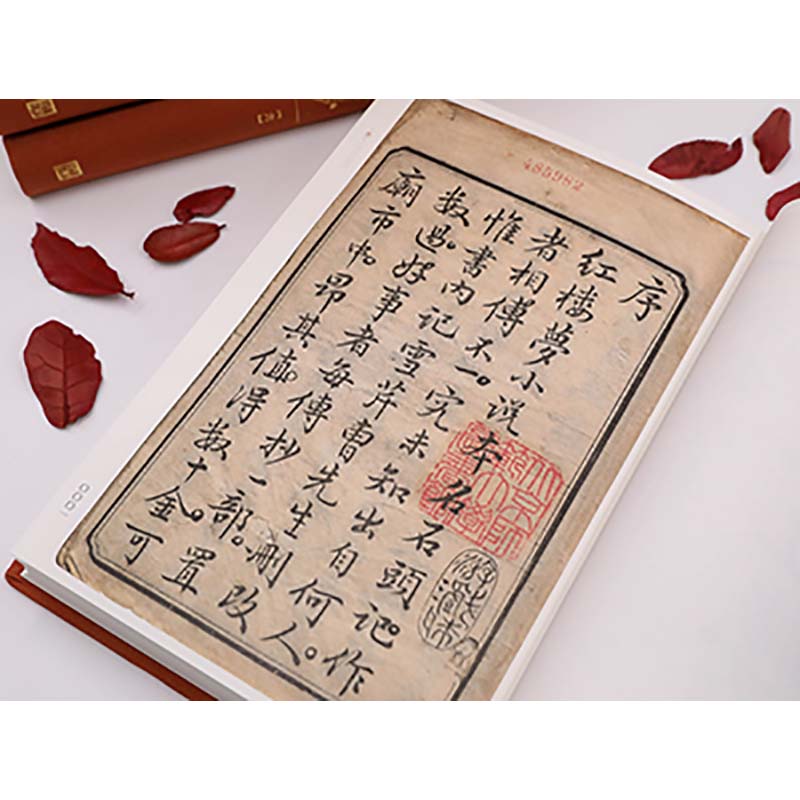 【20】
485982
序
紅樓夢小說本名石頭記。作
者相傳不一。究未知出自何人。
惟書內記雪芹曹先生刪改
數過。好事者每傳抄一部。置
廟市中昂其值得數十金。可